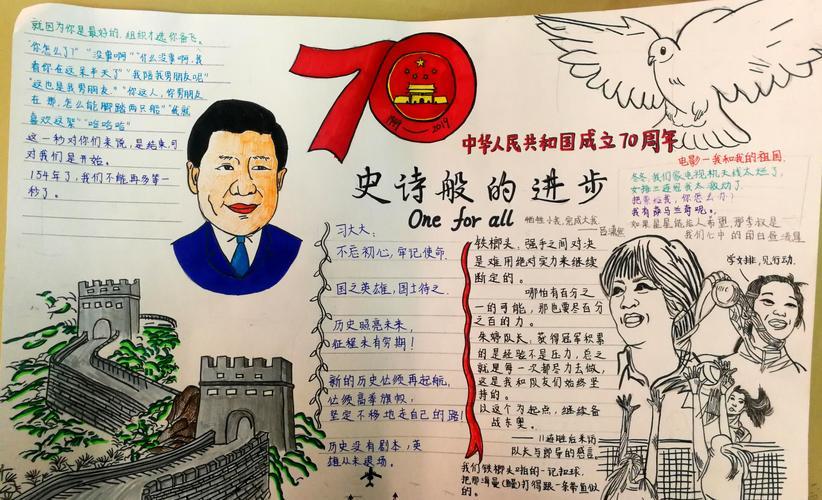 就因为你是最好的,组织才选你奋飞。
"你怎么了?""没事啊""什么没事啊,我
看你在这呆半天了""我陪我男朋友呢"
"这也是我男朋友。""你这人,你男朋友
在那,怎么能脚踏两只船""我就
喜欢这架""哈哈哈"
这一秒对你们来说,是结束,可
对我们是开始。
154年了,我们不能再多等一
秒了。
70
1949—2019
中华人民共和国成立70周年
史诗般的进步
One for all
牺牲小我,完成大我。
电影—我和我的祖国.
冬冬,我们家电视机天线太烂了,
女排三连冠我太激动了.
把票给我,你怎么办)
我有薛马兰哥呢。,
习大大:
不忘初心,牢记使命.
国之英雄,国士待之.
历史照亮未来,
征程未有穷期!
新的历史从倾再起航,
从倾高举旗帜,
坚定不移地走自己的路!
历史没有剧本,英
雄从未退场。
铁榔头,强手之间对决
是难用绝对实力来继续
断定的。
哪怕有百分之
一的可能,那也要尽百分
之百的力。
朱婷队长,获得冠军积累
的是经验不是压力,总之
就是每一次都尽力去做,
这是我和队友们始终坚
持的。
以这个为起点,继续备
战东奥。
——11连胜后采访
队长与郎导的感言。
我们铁榔头啪的一记扣球.
学女排,见行动.